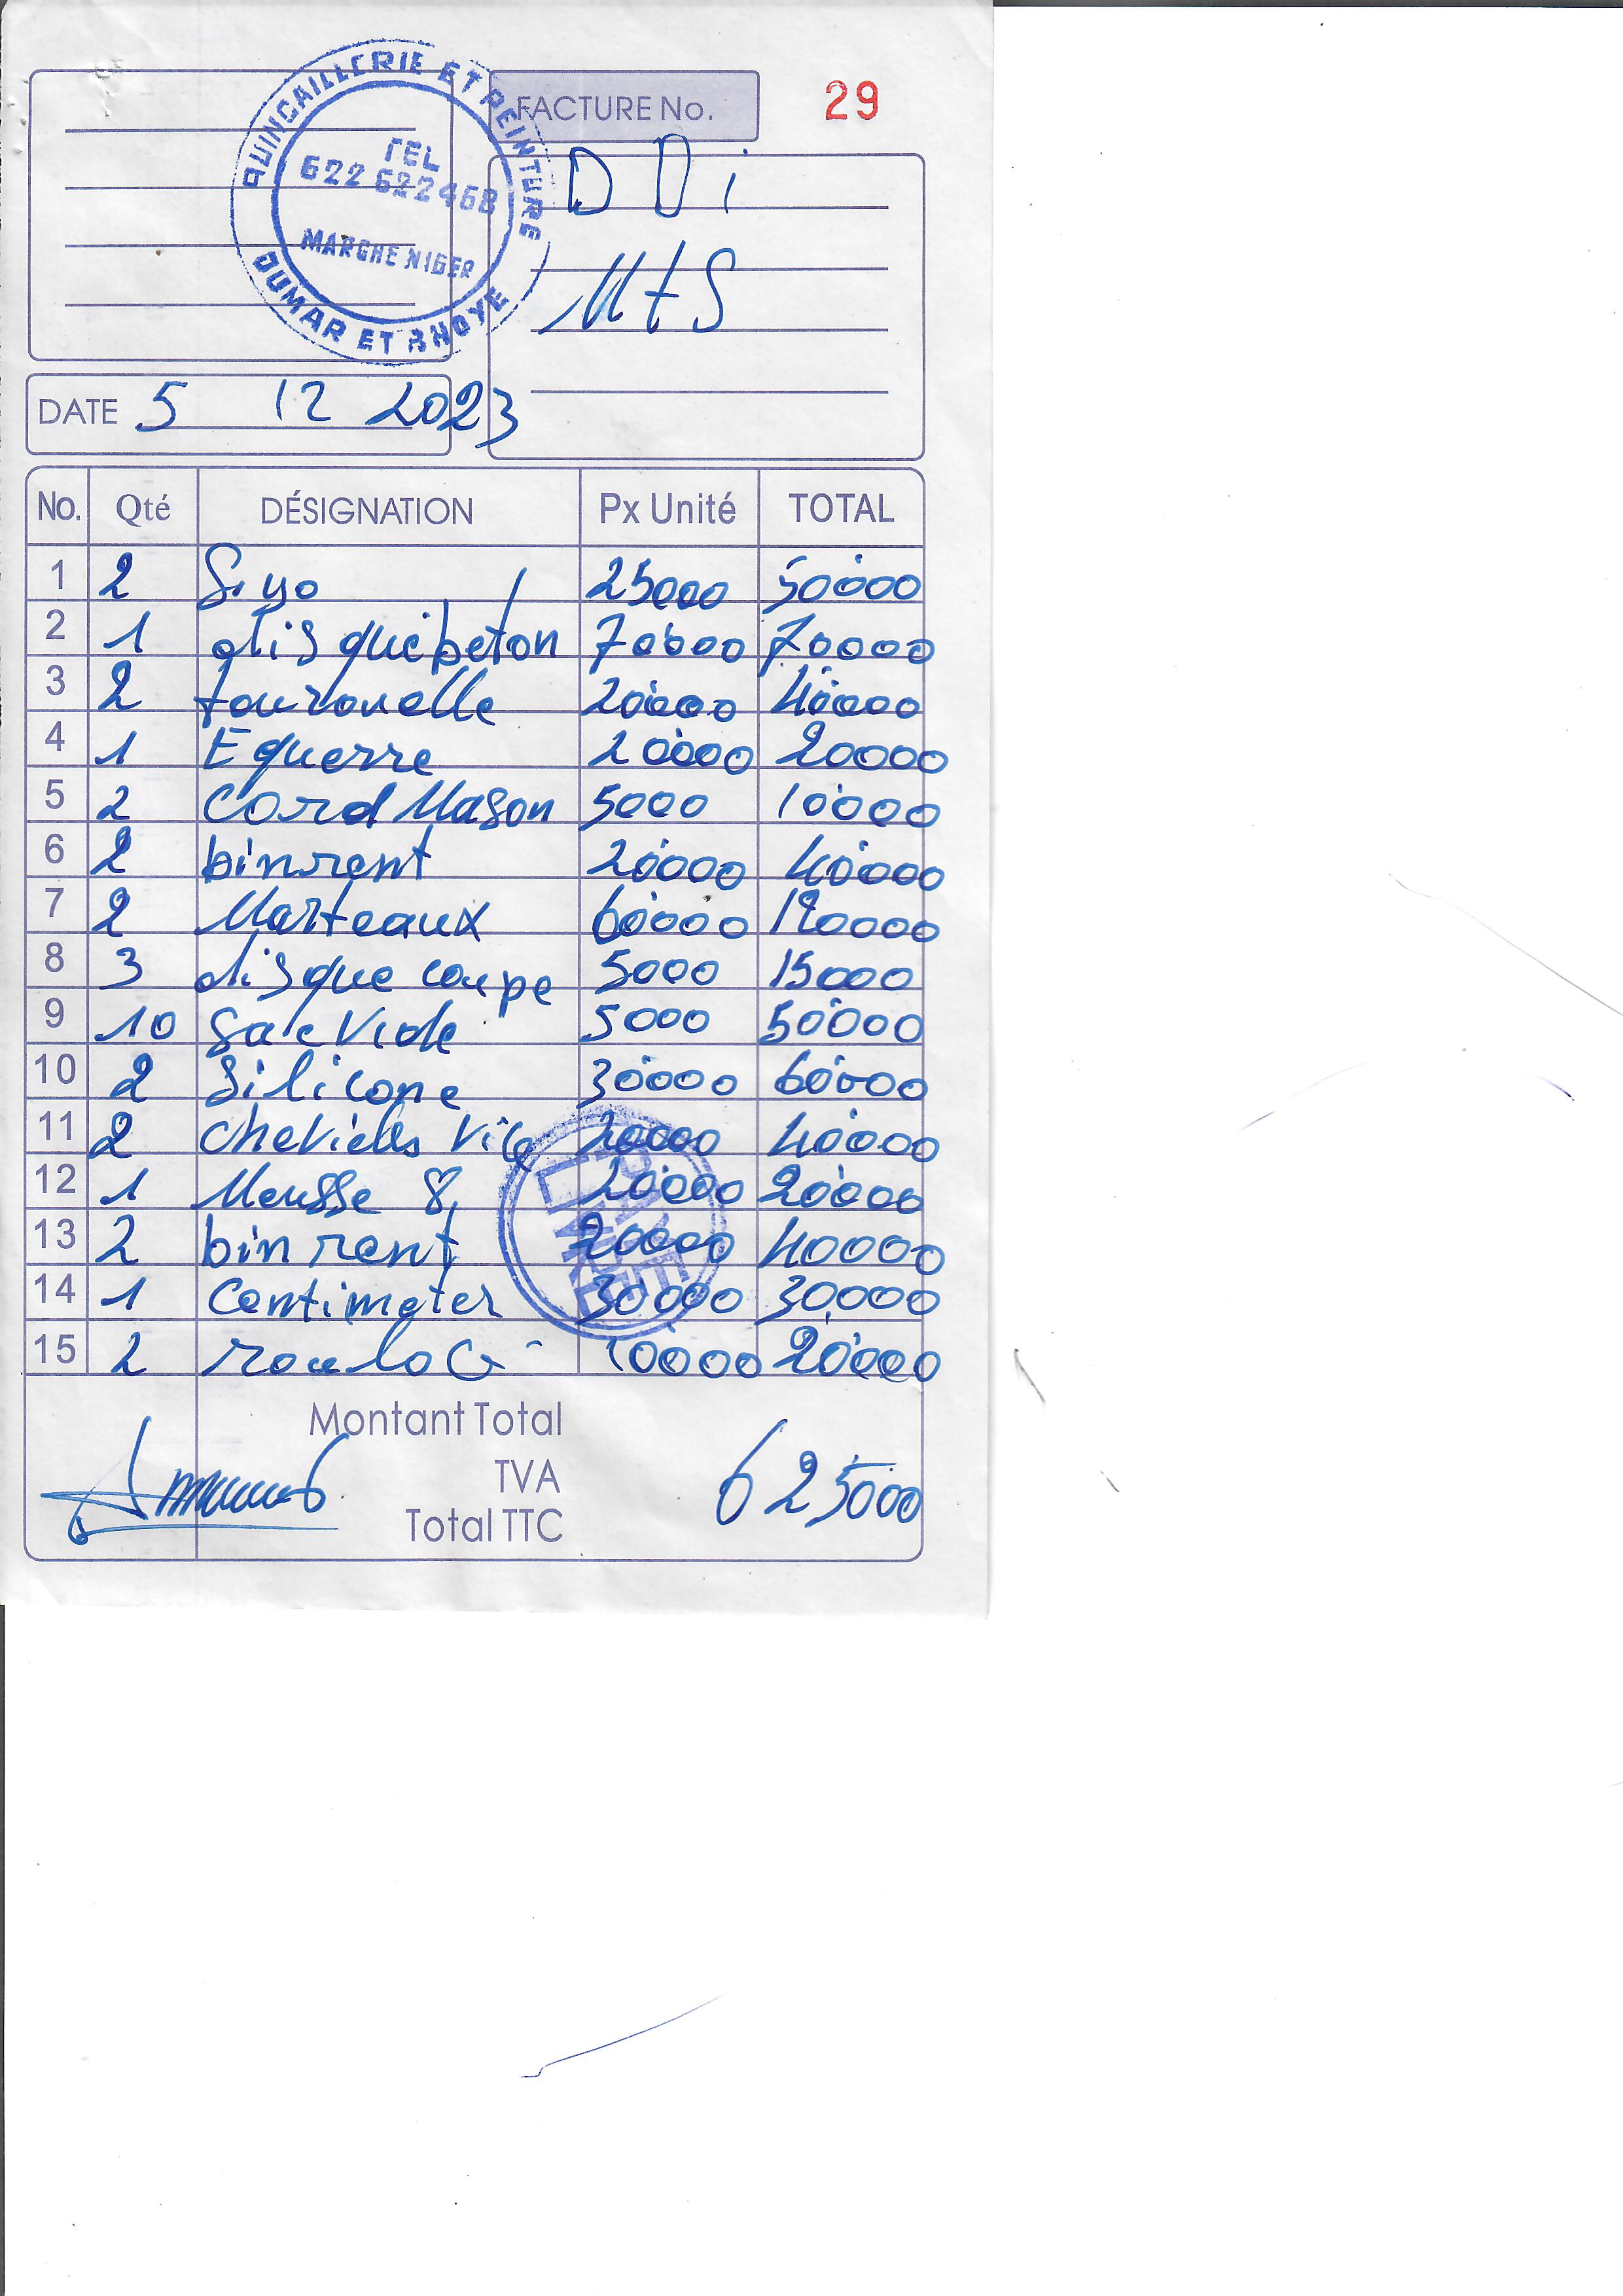 QUINCAILLERIE ET PEINTURE
TEL
622 622468
MARCHE NIGER
OUMAR ET BHOYE
FACTURE No. 29
D D i
MTS
DATE 5 12 2023
No. Qté DÉSIGNATION Px Unité TOTAL
1 2 Siyo 25000 50000
2 1 disque beton 70000 70000
3 2 tournouelle 20000 40000
4 1 Equerre 20000 20000
5 2 Cord Mason 5000 10000
6 2 binrent 20000 40000
7 2 Marteaux 60000 120000
8 3 disque coupe 5000 15000
9 10 Sac vide 5000 50000
10 2 Silicone 30000 60000
11 2 20000 40000
12 1 Mousse 8 20000 20000
13 2 binrent 20000 40000
14 1 Centimeter 30000 30000
15 2 10000 20000
Montant Total
TVA 625000
Total TTC
PAYE